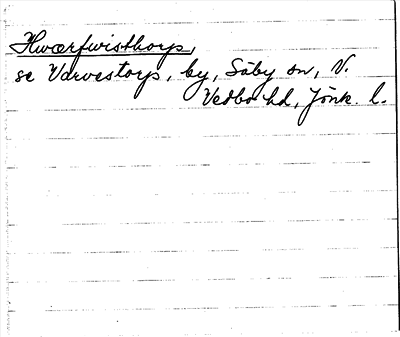 Hwærfwisthorps,
se Varvestorp, by, Säby sn, N.
Vedbo hd, Jönk. l.